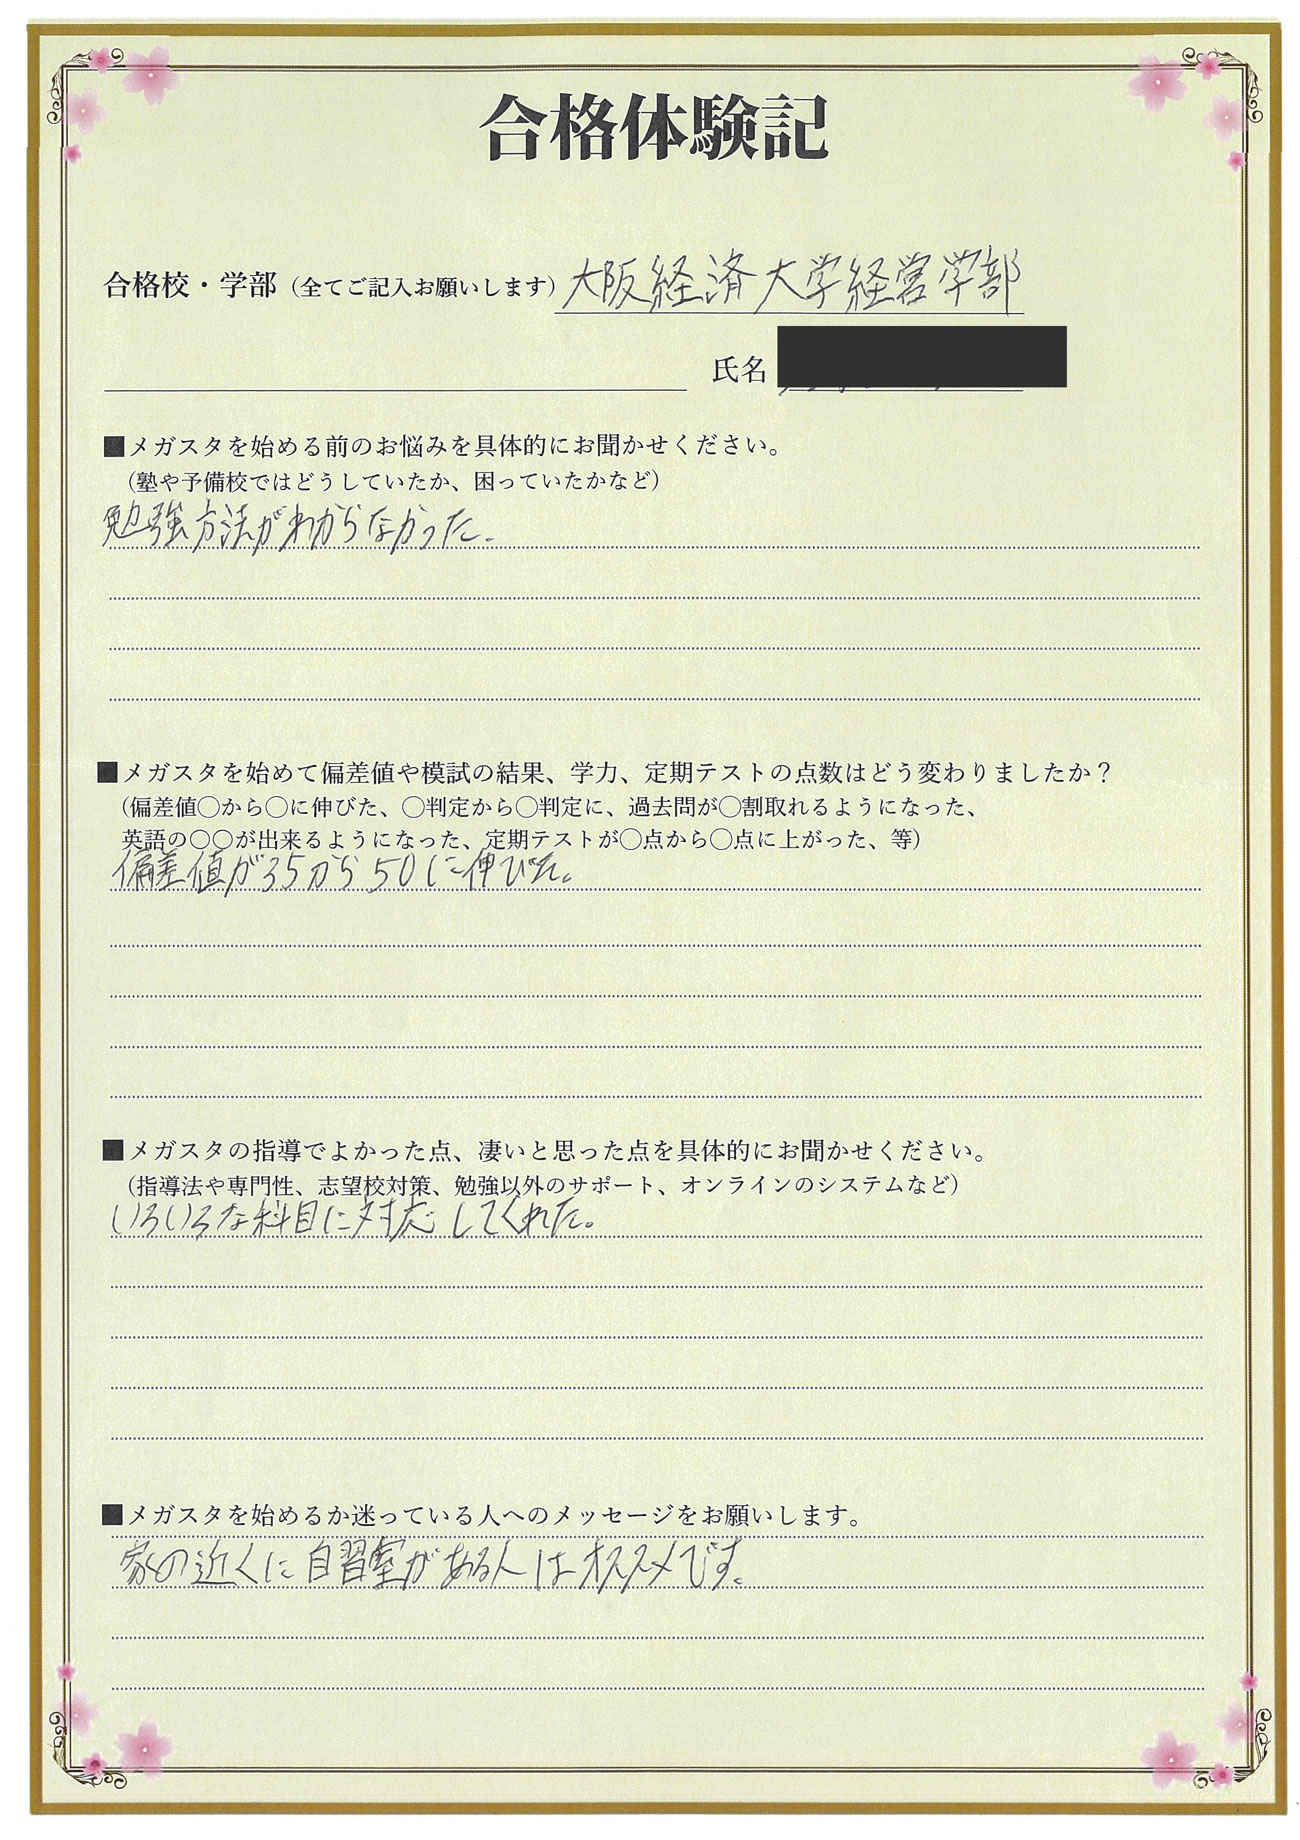 合格体験記
合格校・学部（全てご記入お願いします）大阪経済大学経営学部
氏名
■メガスタを始める前のお悩みを具体的にお聞かせください。
（塾や予備校ではどうしていたか、困っていたかなど）
勉強方法がわからなかった.
■メガスタを始めて偏差値や模試の結果、学力、定期テストの点数はどう変わりましたか？
（偏差値〇から〇に伸びた、〇判定から〇判定に、過去問が〇割取れるようになった、
英語の〇〇が出来るようになった、定期テストが〇点から〇点に上がった、等）
偏差値が35から50に伸びた。
■メガスタの指導でよかった点、凄いと思った点を具体的にお聞かせください。
（指導法や専門性、志望校対策、勉強以外のサポート、オンラインのシステムなど）
いろいろな科目に対応してくれた。
■メガスタを始めるか迷っている人へのメッセージをお願いします。
家の近くに自習室がある人はオススメです。